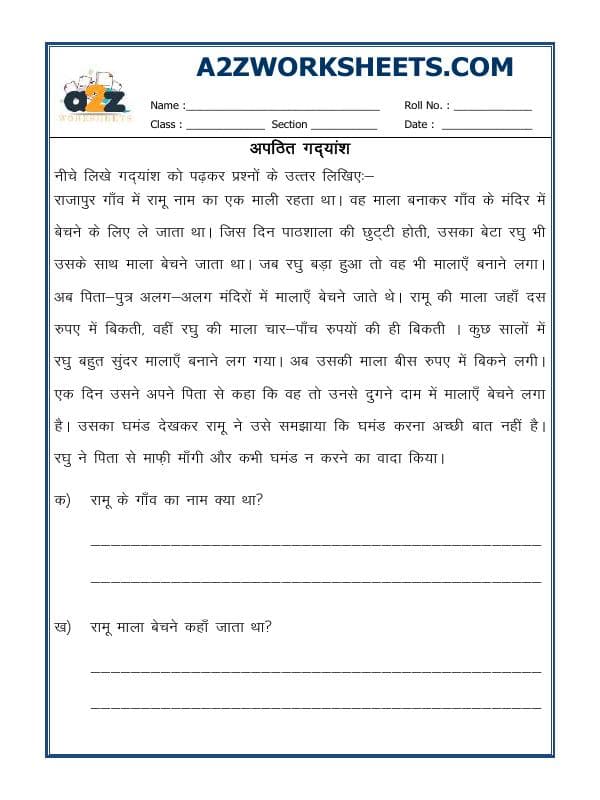 A2ZWORKSHEETS.COM
a2z
WORKSHEETS
Name :______________________________ Roll No. : ____________
Class : ____________ Section __________ Date : ______________
अपठित गद्यांश
नीचे लिखे गद्यांश को पढ़कर प्रश्नों के उत्तर लिखिए:–
राजापुर गाँव में रामू नाम का एक माली रहता था। वह माला बनाकर गाँव के मंदिर में
बेचने के लिए ले जाता था। जिस दिन पाठशाला की छुट्टी होती, उसका बेटा रघु भी
उसके साथ माला बेचने जाता था। जब रघु बड़ा हुआ तो वह भी मालाएँ बनाने लगा।
अब पिता–पुत्र अलग–अलग मंदिरों में मालाएँ बेचने जाते थे। रामू की माला जहाँ दस
रुपए में बिकती, वहीं रघु की माला चार–पाँच रुपयों की ही बिकती । कुछ सालों में
रघु बहुत सुंदर मालाएँ बनाने लग गया। अब उसकी माला बीस रुपए में बिकने लगी।
एक दिन उसने अपने पिता से कहा कि वह तो उनसे दुगने दाम में मालाएँ बेचने लगा
है। उसका घमंड देखकर रामू ने उसे समझाया कि घमंड करना अच्छी बात नहीं है।
रघु ने पिता से माफ़ी माँगी और कभी घमंड न करने का वादा किया।
क) रामू के गाँव का नाम क्या था?
ख) रामू माला बेचने कहाँ जाता था?